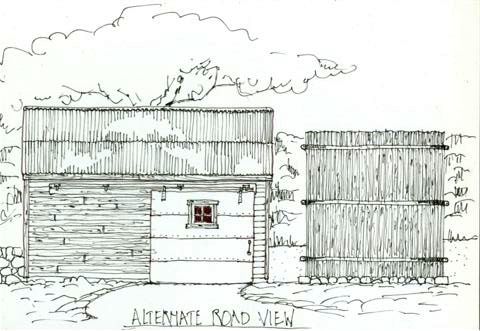 ALTERNATE ROAD VIEW